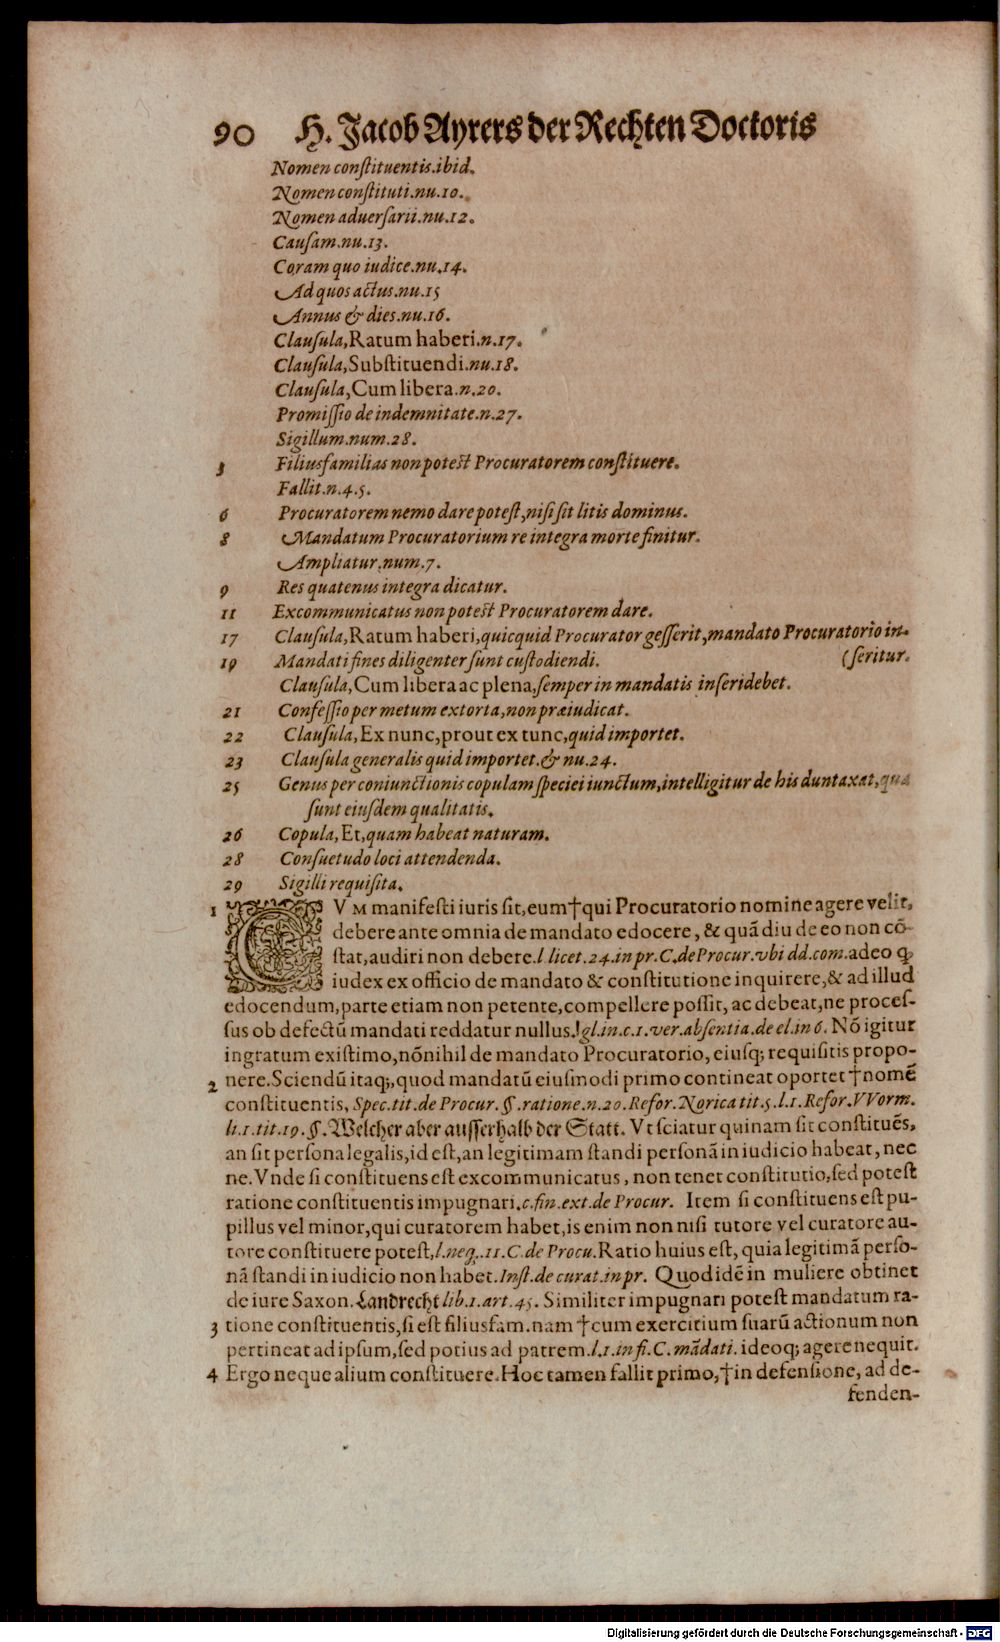 90 H. Jacob Ayrers der Rechten Doctoris
Nomen conſtituentis.ibid.
Nomen conſtituti.nu.10.
Nomen aduerſarii.nu.12.
Cauſam.nu.13.
Coram quo iudice.nu.14.
Ad quos actus.nu.15
Annus & dies.nu.16.
Clauſula,Ratum haberi.n.17.
Clauſula,Subſtituendi.nu.18.
Clauſula,Cum libera.n.20.
Promiſſio de indemnitate.n.27.
Sigillum.num.28.
3 Filiusfamilias non poteſt Procuratorem conſtituere.
Fallit.n.4.5.
6 Procuratorem nemo dare poteſt,niſi ſit litis dominus.
8 Mandatum Procuratorium re integra morte finitur.
Ampliatur.num.7.
9 Res quatenus integra dicatur.
11 Excommunicatus non poteſt Procuratorem dare.
17 Clauſula,Ratum haberi,quicquid Procurator geſſerit,mandato Procuratorio in-
19 Mandati fines diligenter ſunt cuſtodiendi. (ſeritur.
Clauſula,Cum libera ac plena,ſemper in mandatis inſeri debet.
21 Confeſſio per metum extorta,non præiudicat.
22 Clauſula,Ex nunc,prout ex tunc,quid importet.
23 Clauſula generalis quid importet.& nu.24.
25 Genus per coniunctionis copulam ſpeciei iunctum,intelligitur de his duntaxat,quæ
ſunt eiuſdem qualitatis.
26 Copula,Et,quam habeat naturam.
28 Conſuetudo loci attendenda.
29 Sigilli requiſita.
1 CVM manifeſti iuris ſit,eum†qui Procuratorio nomine agere velit,
debere ante omnia de mandato edocere, & quã diu de eo non cõ-
ſtat,audiri non debere.l licet.24.in pr.C.de Procur.vbi dd.com.adeo ꝙ
iudex ex officio de mandato & conſtitutione inquirere,& ad illud
edocendum,parte etiam non petente,compellere poſſit, ac debeat,ne proceſ-
ſus ob defectũ mandati reddatur nullus.gl.in.c.1.ver.abſentia.de el.in 6. Nõ igitur
ingratum exiſtimo,nõnihil de mandato Procuratorio, eiuſq; requiſitis propo-
2 nere.Sciendũ itaq;,quod mandatũ eiuſmodi primo contineat oportet †nomẽ
conſtituentis, Spec.tit.de Procur.§.ratione.n.20.Refor.Norica tit.5.l.1.Refor.VVorm.
li.1.tit.19.§.Welcher aber auſſerhalb der Statt. Vt ſciatur quinam ſit conſtituẽs,
an ſit perſona legalis,id eſt,an legitimam ſtandi perſonã in iudicio habeat, nec
ne.Vnde ſi conſtituens eſt excommunicatus, non tenet conſtitutio,ſed poteſt
ratione conſtituentis impugnari.c.fin.ext.de Procur. Item ſi conſtituens eſt pu-
pillus vel minor,qui curatorem habet,is enim non niſi tutore vel curatore au-
tore conſtituere poteſt,l.neq.11.C.de Procu.Ratio huius eſt, quia legitimã perſo-
nã ſtandi in iudicio non habet.Inſt.de curat.in pr. Quod idẽ in muliere obtinet
de iure Saxon.Landrecht lib.1.art.45. Similiter impugnari poteſt mandatum ra-
3 tione conſtituentis,ſi eſt filiusfam.nam †cum exercitium ſuarũ actionum non
pertineat ad ipſum,ſed potius ad patrem.l.1.in fi.C.mãdati.ideoq; agere nequit.
4 Ergo neque alium conſtituere.Hoc tamen fallit primo,†in defenſione, ad de-
fenden-
Digitalisierung gefördert durch die Deutsche Forschungsgemeinschaft - DFG